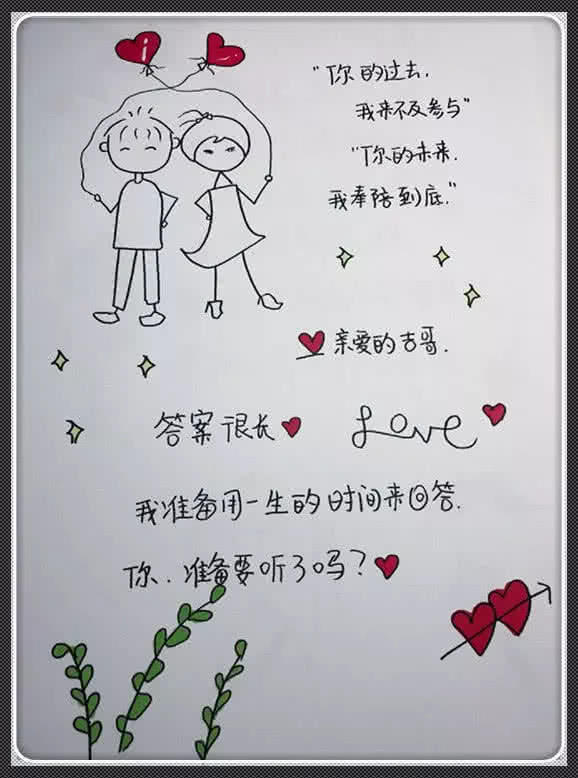 i
"你的过去.
我来不及参与"
"你的未来.
我奉陪到底."
亲爱的吉哥.
答案很长
Love
我准备用一生的时间来回答.
你.准备要听了吗?